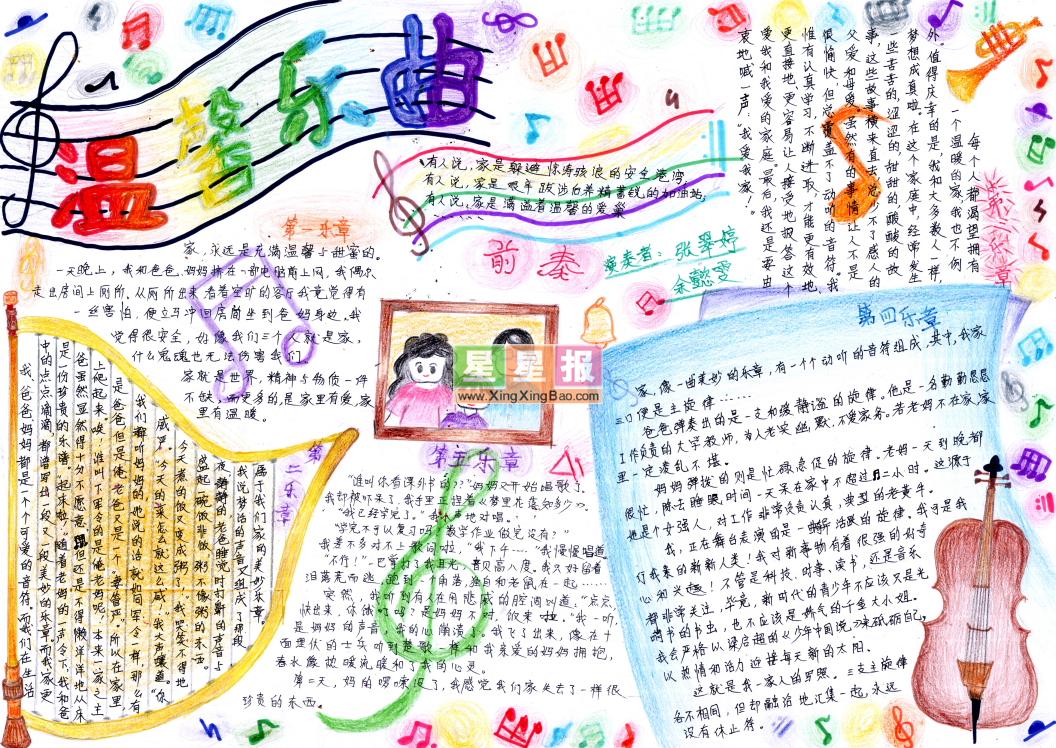 温馨乐曲
有人说,家是躲避惊涛骇浪的安全港湾,
有人说,家是艰辛跋涉后养精蓄锐的加油站;
有人说,家是满溢着温馨的爱巢
………
前奏
演奏者:张翠婷
余懿雯
第一乐章
家,永远是充满温馨与甜蜜的。
一天晚上,我和爸爸、妈妈挤在一部电脑前上网,我偶尔
走出房间上厕所。从厕所出来看着空旷的客厅我竟觉得有
一丝害怕,便立马冲回房间坐到爸妈身边。我
觉得很安全,好像我们三个人就是家,
什么鬼魂也无法伤害我们。
家就是世界,精神与物质一样
不缺,而更多的是家里有爱,家
里有温暖。
第二乐章
我爸爸妈妈都是一个个可爱的音符。而我们在生活
中的点点滴滴都谱写出一段又一段美妙的乐章,而我家更
是一份珍贵的乐谱。“起床啦!”随着老妈的一声令下,我和爸
爸虽然显然得十分不愿意,但还是不得懒懒洋洋地从床
上爬起来,唉!谁叫下军令的是俺老妈呢!本来一家之主
是爸爸,但是俺老爸又是一个“妻管严”。所以在家里
我们都听妈妈的,她说的话就如同军令一样,那么有
威严。“今天的菜怎么就这么咸!”我大声嚷道。“你
今天煮的饭又变成粥了!”我哭笑不得地
盛起一碗饭非饭、粥不像粥的东西。
夜静静的,老爸睡觉时打鼾的声音与
我说梦话的声音又组成了那段
属于我们家的美妙乐章。
第三乐章
每个人都渴望拥有
一个温暖的家,我也不例
外。值得庆幸的是,我和大多数人一样,
梦想成真啦。在这个家庭中,经常发生
一些苦苦的,涩涩的,甜甜的,酸酸的故
事,这些故事横来直去总少不了感人的
父爱和母爱。虽然有的事情让人不是
很愉快,但总覆盖不了动听的音符。我
惟有认真学习,不断进取,才能更有效地、
更直接地、更容易让人接受地报答这个
爱我和我爱的家庭。最后,我还是要由
衷地喊一声:“我爱我家!”
第四乐章
家,像一曲美妙的乐章,有一个个动听的音符组成。其中,我家
三口便是主旋律……
爸爸弹奏出的是一支和缓静谧的旋律。他是一名勤勤恳恳
工作负责的大学教师,为人老实、幽默,不爱家务。若老妈不在家,家
里一定凌乱不堪。
妈妈弹拨的则是忙碌急促的旋律。老妈一天到晚都
很忙,除去睡眠时间一天呆在家中不超过二小时。这源于
她是个女强人,对工作非常负责认真,典型的老黄牛。
我,正在舞台表演的是一活跃的旋律。我可是我
们我素的新新人类!我对新事物有着很强的好奇
心和兴趣!不管是科技、时事、读书,还是音乐
都非常关注,毕竟,新时代的青少年不应该只是光
啃书的书虫,也不应该是娇气的千金大小姐。
我会严格以梁启超的《少年中国说》来砥砺自己,
以热情和活力迎接每天新的太阳。
这就是我一家人的写照。三支主旋律
各不相同,但却融洽地汇集一起,永远
没有休止符。
第五乐章
“谁叫你看课外书的??”妈妈又开始唱歌了。
我却被吓呆了。我手里正捏着《梦里花落知多少》。
“我已经学完了。”我小声地对唱。
“学完不可以复习吗?数学作业做完没有?”
我差不多对不上歌词啦,“我下午……”我慢慢唱道
“不行!”一巴掌打了我耳光,音贝高八度。我只好留着
泪落荒而逃,跑到一个角落,独自和老鼠在一起……
突然,我听到有人在用悲戚的腔调叫道:“点点,
快出来,你饿了吗?是妈妈不对,饭来啦。”我一听,
是妈妈的声音,我的心崩溃了。我飞了出来,像在十
面埋伏的士兵听到楚歌一样和我亲爱的妈妈拥抱,
春水般的暖流暖和了我的心灵。
第二天,妈的啰嗦没了,我感觉我们家失去了一样很
珍贵的东西。
星星报
www.XingXingBao.com